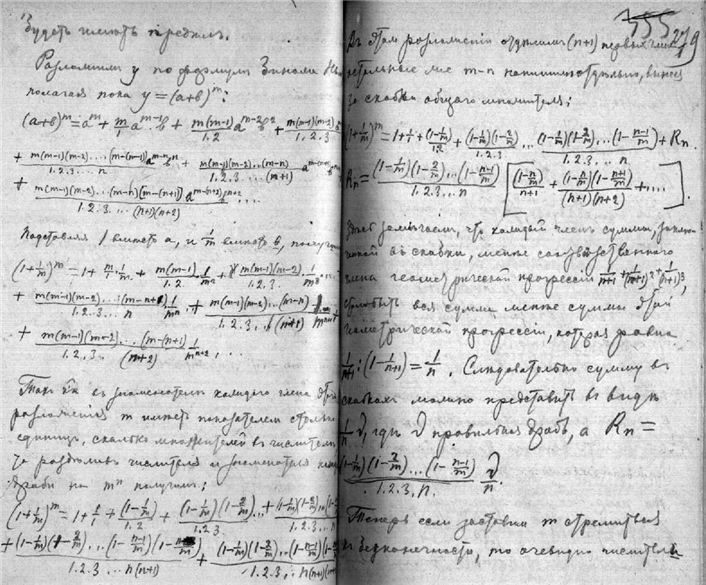 Будетъ имѣть предѣлъ.
Разложимъ y по формулѣ бинома
полагая пока y = (a+b)^m:
(a+b)^m = a^m + m/1 a^{m-1}b + m(m-1)/1.2 a^{m-2}b^2 + m(m-1)(m-2)/1.2.3
+ m(m-1)(m-2)...(m-(n-1))/1.2.3...n a^{m-n}b^n + m(m-1)(m-2)...(m-n)/1.2.3...(n+1)
+ m(m-1)(m-2)...(m-n)(m-(n+1))/1.2.3...(n+1)(n+2) ...
Подставляя 1 вмѣсто a, и 1/m вмѣсто b, получимъ
(1+1/m)^m = 1 + m/1 . 1/m + m(m-1)/1.2 . 1/m^2 + m(m-1)(m-2)/1.2.3 . 1/m^3 ...
+ m(m-1)(m-2)...(m-n+1)/1.2.3...n . 1/m^n + m(m-1)(m-2)...(m-n)/1.2.3...(n+1)
+ m(m-1)(m-2)...(m-n+1)/1.2.3...(n+2) 1/m^{n+2} ...
Такъ какъ въ знаменателѣ каждаго члена
разложенія m имѣетъ показателемъ столько
единицъ, сколько множителей въ числителѣ
то раздѣливъ числителя и знаменателя
дроби на m^n получимъ:
(1+1/m)^m = 1 + 1/1 + (1-1/m)/1.2 + (1-1/m)(1-2/m)/1.2.3 ...
+ (1-1/m)(1-2/m)...(1-(n-1)/m)(1-n/m)/1.2.3...n(n+1) + (1-1/m)(1-2/m)...
355
279
Въ этомъ разложеніи отдѣлимъ (n+1) первыхъ
остальные же m-n напишемъ отдѣльно, вынеся
за скобки общаго множителя:
(1+1/m)^m = 1 + 1/1 + (1-1/m)/1.2 + (1-1/m)(1-2/m)/1.2.3 ... (1-1/m)(1-2/m)...(1-(n-1)/m)/1.2.3...n + Rn.
Rn = (1-1/m)(1-2/m)...(1-(n-1)/m)/1.2.3...n [ (1-n/m)/(n+1) + (1-n/m)(1-(n+1)/m)/(n+1)(n+2) + .... ]
замѣчаемъ, что каждый членъ суммы,
въ скобки, менѣе соотвѣтственнаго
члена геометрической прогрессіи 1/(n+1) + 1/(n+1)^2 + 1/(n+1)^3,
вся сумма менѣе суммы этой
геометрической прогрессіи, которая равна
1/(n+1) : (1-1/(n+1)) = 1/n. Слѣдовательно сумму въ
скобкахъ можно представить въ видѣ
1/n ϑ, гдѣ ϑ правильная дробь, а Rn =
(1-1/m)(1-2/m)...(1-(n-1)/m)/1.2.3.n. ϑ/n.
Теперь если заставимъ m стремиться
къ безконечности, то очевидно числители